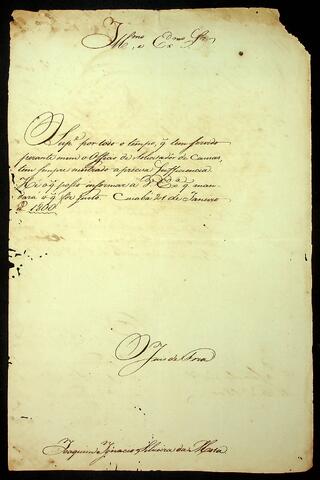 Illmo e Exmo Snr
O Supe por todo o tempo, q̃ tem servido
perante mim o Officio de Solicitador de Causas,
tem sempre mostrado a precisa sufficiencia.
He o q̃ posso informar a V. Exa q̃ man-
dara o q̃ for justo. Cuiabá 21 de Janeiro
de 1800
O Juiz de Fora
Joaquim Ignacio Silveira da Mota